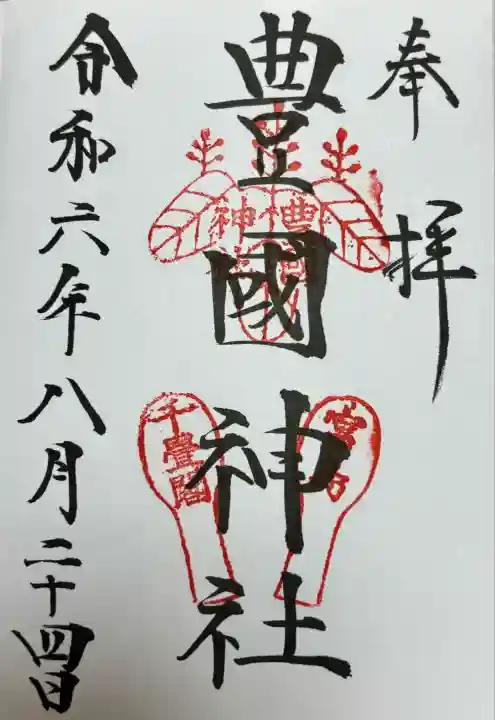 奉拝
豊國神社
豊國
神社
宮乃
千畳閣
令和六年八月二十四日